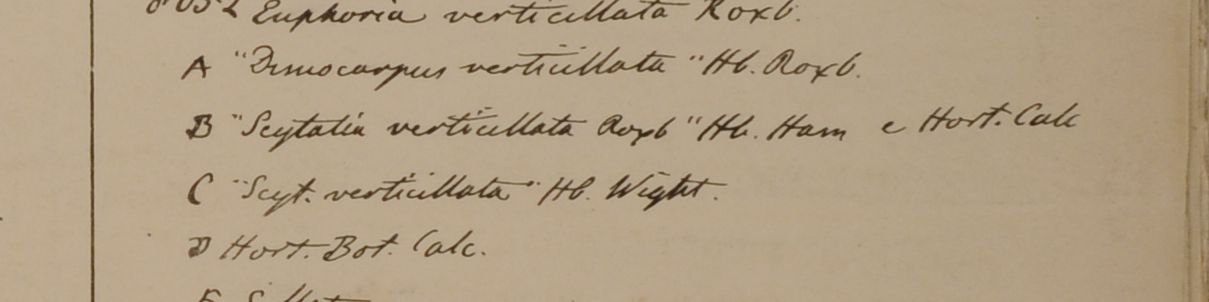 8052 Euphoria verticillata Roxb.
A "Dimocarpus verticillata" Hb. Roxb.
B "Scytalia verticillata Roxb" Hb. Ham e Hort. Calc
C "Scyt. verticillata" Hb. Wight.
D Hort. Bot. Calc.
E